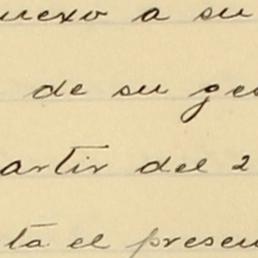 nexo a su
de su ges
artir del 2
ta el presen